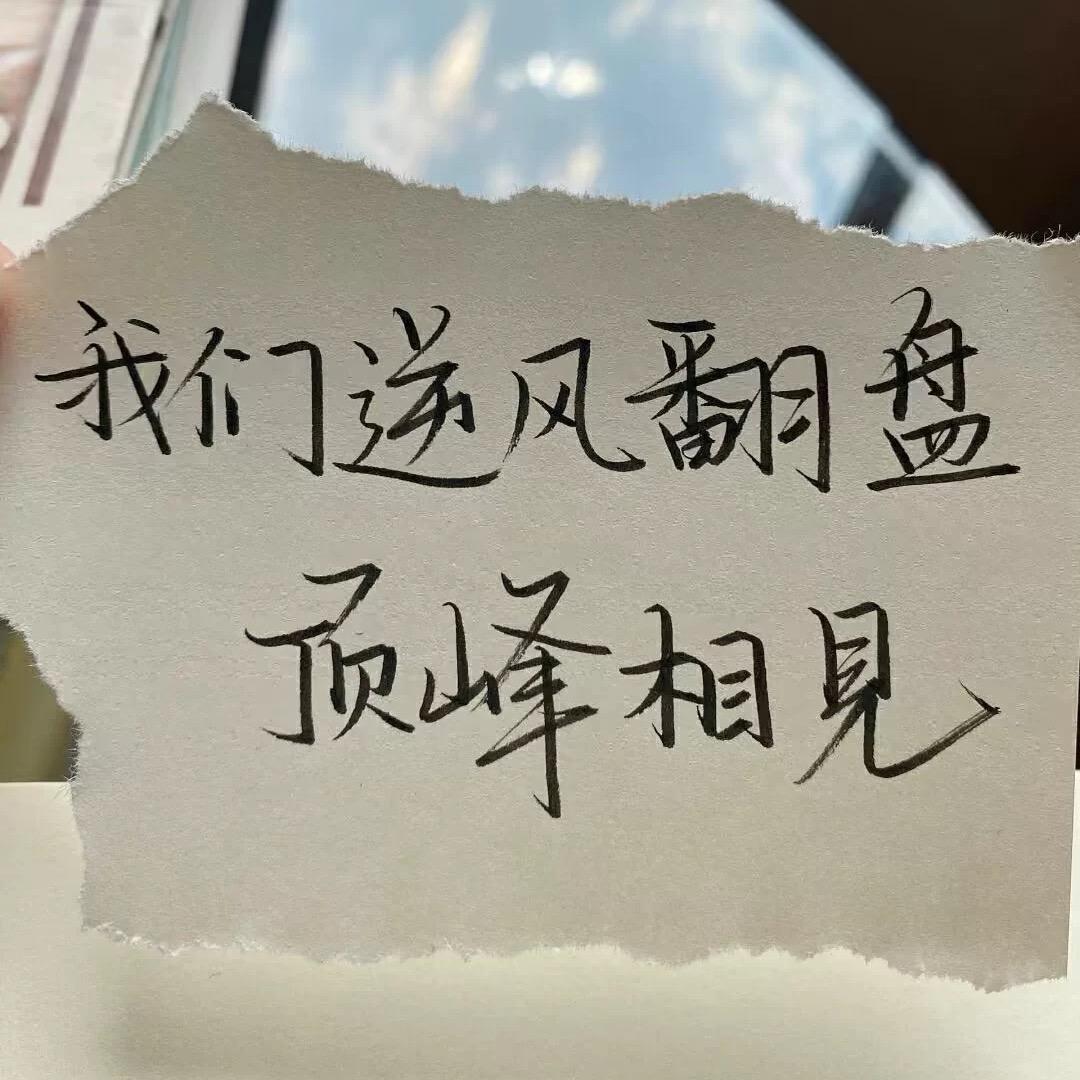 我们逆风翻盘
顶峰相见